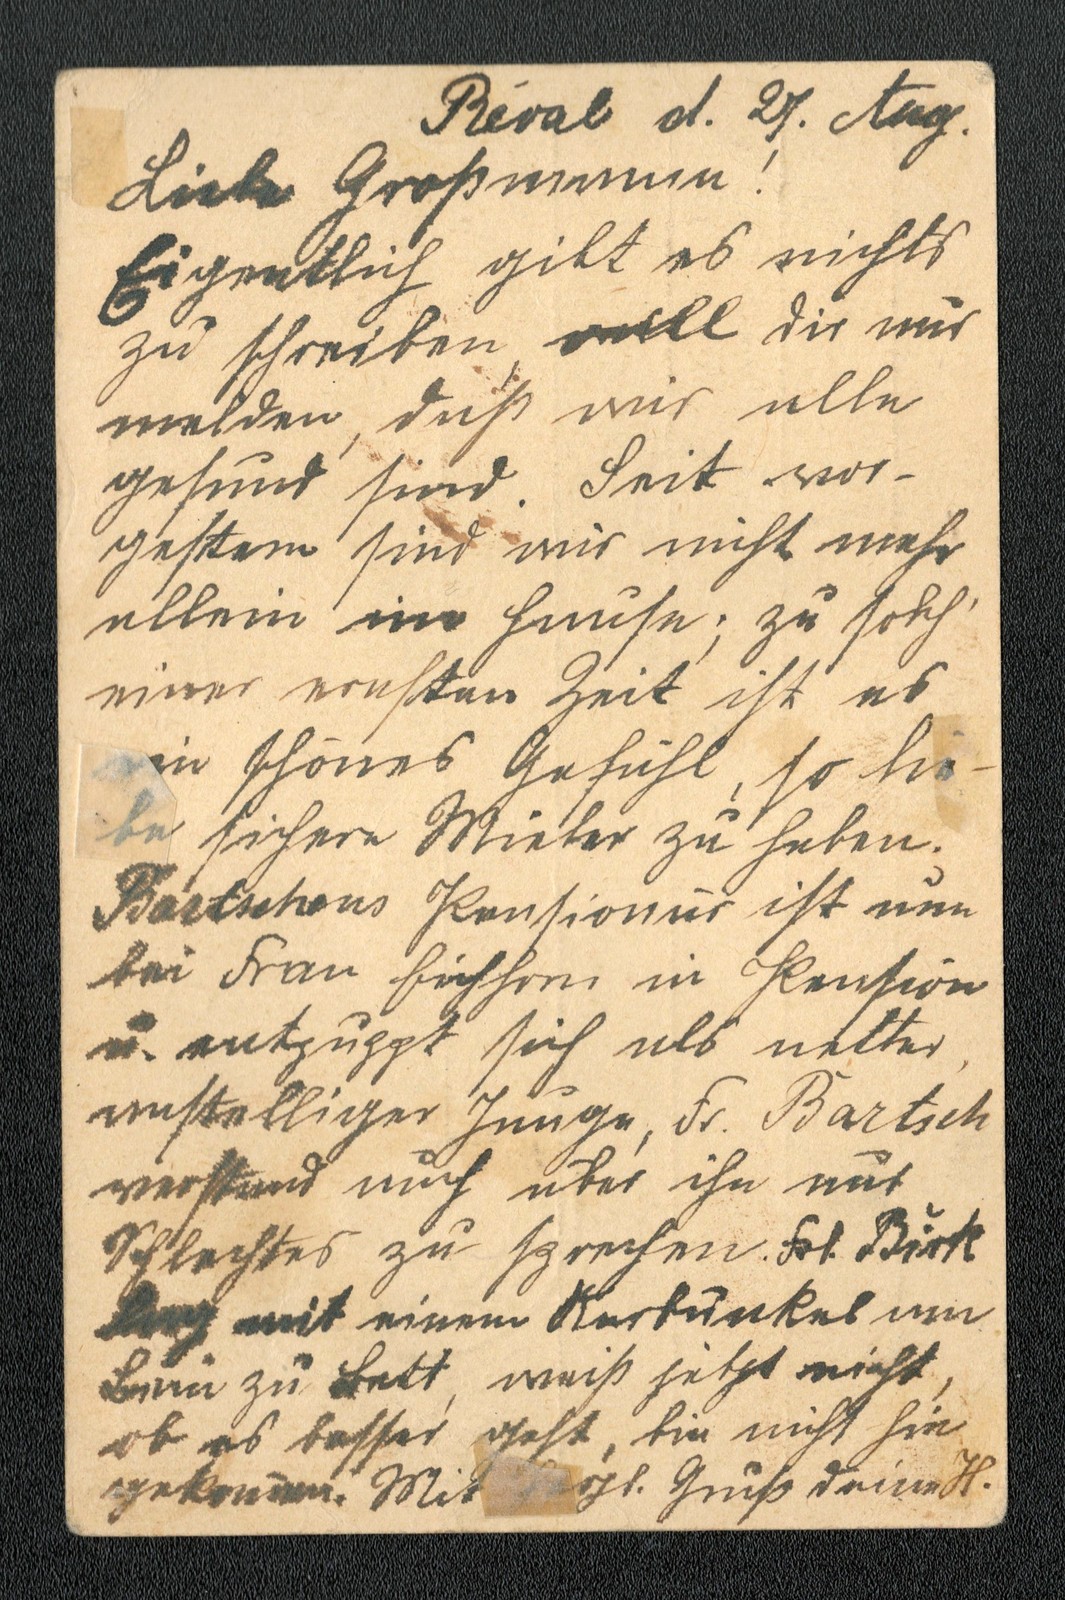 Réval d. 27. Aug.
Liebe Großmama!
Eigentlich gibt es nichts
zu schreiben, will dir nur
melden, daß wir alle
gesund sind. Seit vor-
gestern sind wir nicht mehr
allein im Hause; zu solch'
einer ernsten Zeit ist es
ein schönes Gefühl, so lie-
be sichere Mieter zu haben.
Bartschens Pensionär ist nun
bei Frau Eichhorn in Pension
u. entpuppt sich als netter,
anstelliger Junge, Fr. Bartsch
verstand auch über ihn nur
Schlechtes zu sprechen. Frl. Birk
lag mit einem Karbunkel am
Bein zu Bett, weiß jetzt nicht,
ob es besser geht, bin nicht hin
gekommen. Mit herzl. Gruß deine H.